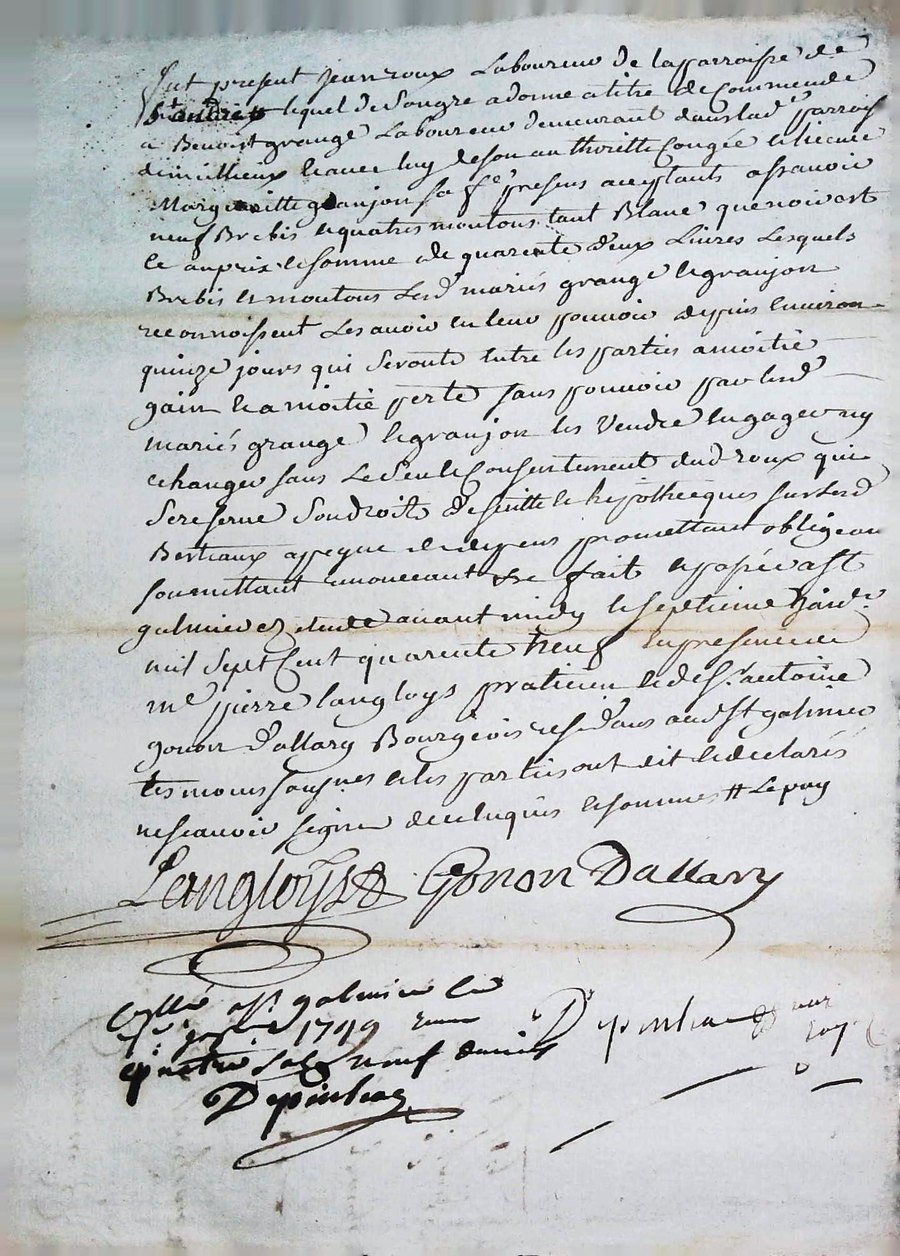 fut present Jean roux Laboureur de la parroisse de
St andré lequel de son gre a donne a titre de Commende
a Benoist grange Laboureur demeurant dans lad parrois
de et avec luy de son authoritte Congée et licence
Margueritte granjon sa fe presens aceptants assavoir
neuf Brebis et quatres moutons tant Blanc que noir et
ce au prix et somme de quarente deux Livres Lesquels
Brebis et moutons Lesd mariés grange et granjon
reconnoissent Les avoir en leur pouvoir depuis Environ
quinze jours qui seronts entre les parties a moitié
gain et a moitié perte sans pouvoir par lesd
mariés grange et granjon les Vendre Engager ny
echanger sans Le seu et Consentement dud roux qui
se reserve son droit de suitte et hipotheeques sur lesd
Bestiaux a peyne de depens promettant obligeant
soumettant renonceant &c fait et passé a st
galmier ez etude avant midy le septieme Janvr
mil sept Cent quarente neuf En presence de
me pierre langloys praticien et de sr antoine
gonon d'allary Bourgeois residans aud st galmier
tesmoins sousnes et les parties ont dit et declarés
ne scavoir signer de ce Enquis et sommes #
Langloys Gonon Dallary
Collé a st galmier Le
janer 1749 recu
quatre sols neuf deniers
Depinhac
Depinhac